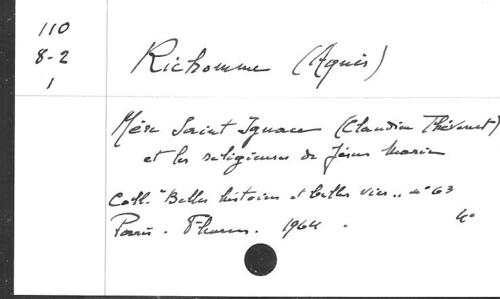 110
8-2
1
Richomme (Agnès)
Mère Saint Ignace (Claudine Thévenet)
et les religieuses de Jésus Marie
Coll. "Belles histoires et belles vies" n° 63
Paris. Fleurus. 1964.
4°